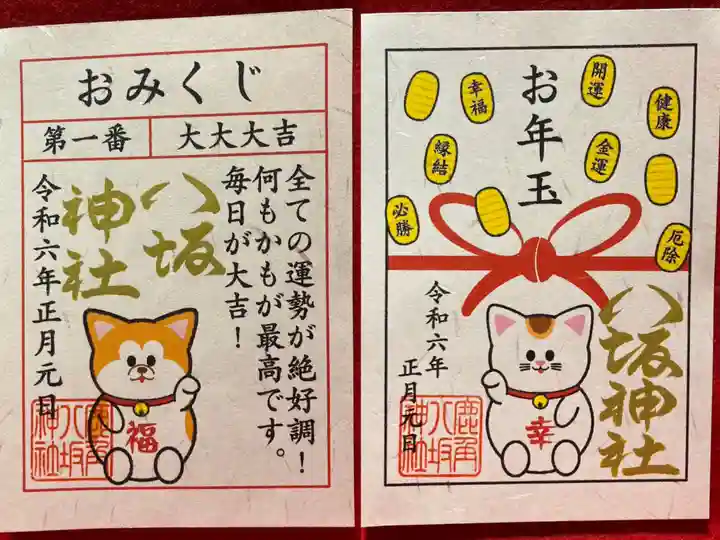 おみくじ
第一番
大大大吉
全ての運勢が絶好調！
何もかもが最高です。
毎日が大吉！
八坂
神社
令和六年正月元日
福
鹿角
八坂
神社
お年玉
開運
幸福
健康
縁結
金運
必勝
厄除
八坂神社
令和六年
正月元日
幸
鹿角
八坂
神社